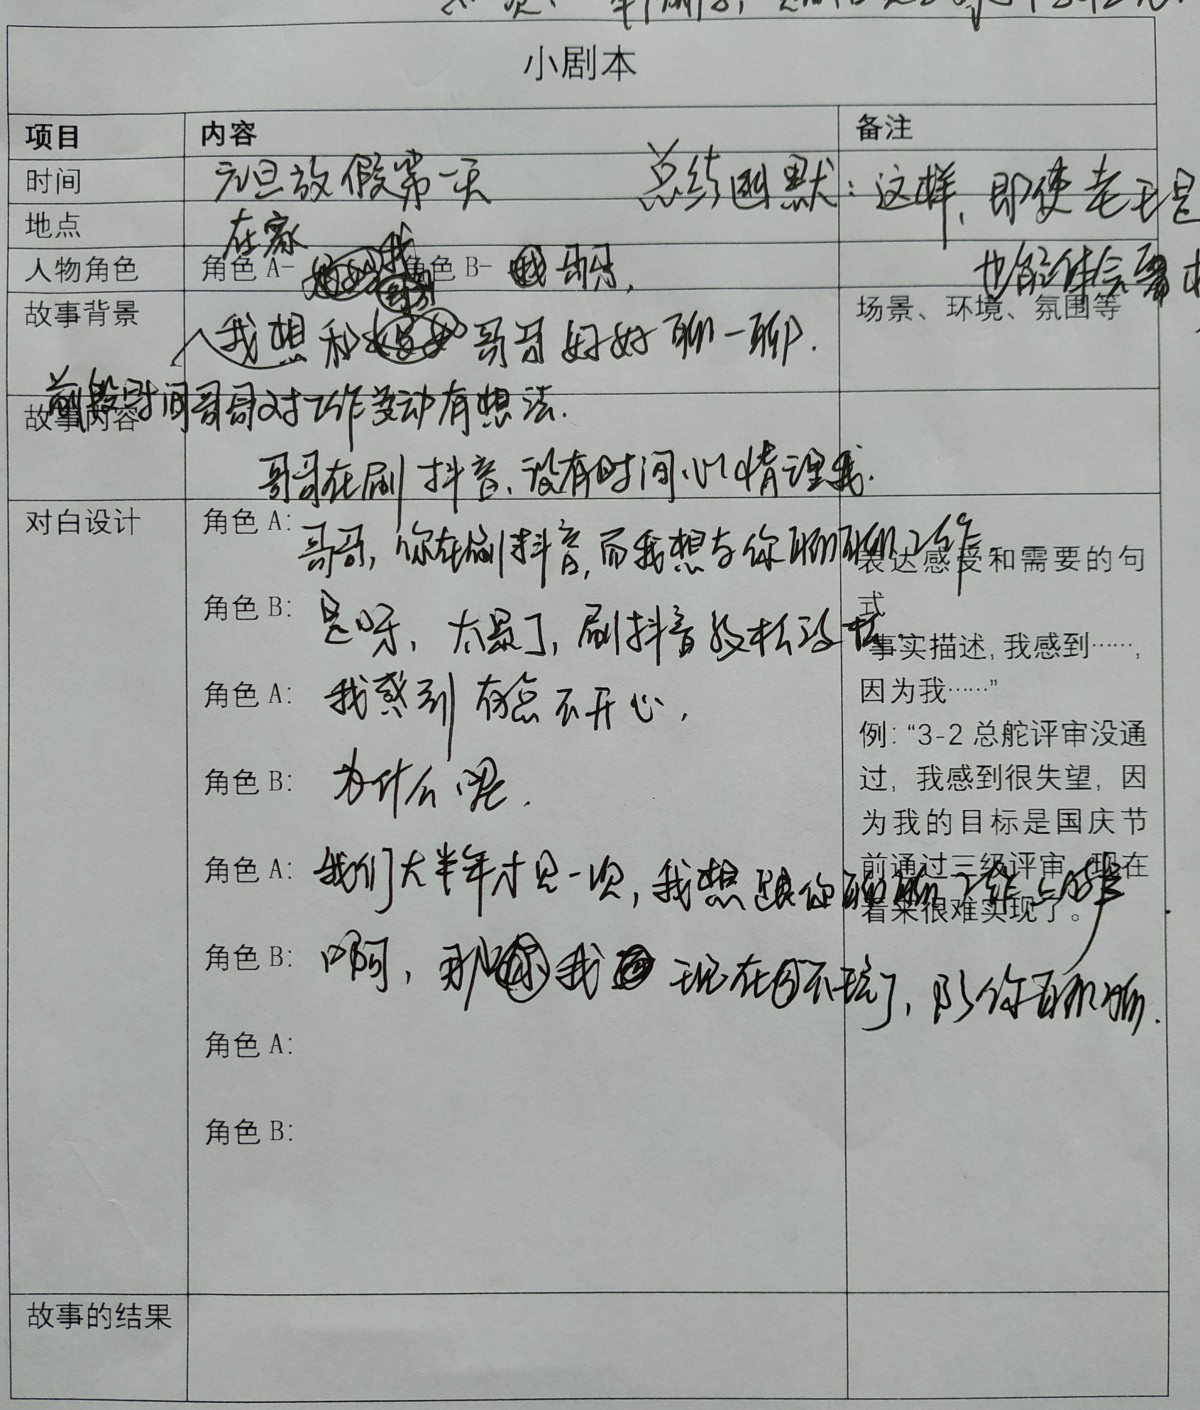 小剧本
项目 内容 备注
时间 元旦放假第一天 总结幽默：这样，即使老王是
地点 在家
人物角色 角色 A- 我 角色 B- 哥哥， 也能体会
故事背景 我想和哥哥好好聊一聊． 场景、环境、氛围等
前段时间哥哥对工作变动有想法．
故事内容
哥哥在刷抖音，没有时间心情理我．
对白设计 角色 A: 哥哥，你在刷抖音，而我想与你聊聊工作．
表达感受和需要的句式
角色 B: 是呀，太累了，刷抖音放松放松．
“事实描述, 我感到……,
角色 A: 我感到有点不开心，
因为我……”
例: “3-2 总舵评审没通
角色 B: 为什么呢．
过，我感到很失望，因
为我的目标是国庆节
角色 A: 我们大半年才见一次，我想跟你聊聊工作上的事
前通过三级评审，现在
看来很难实现了。
角色 B: 啊，那我现在不玩了，陪你聊聊．
角色 A:
角色 B:
故事的结果